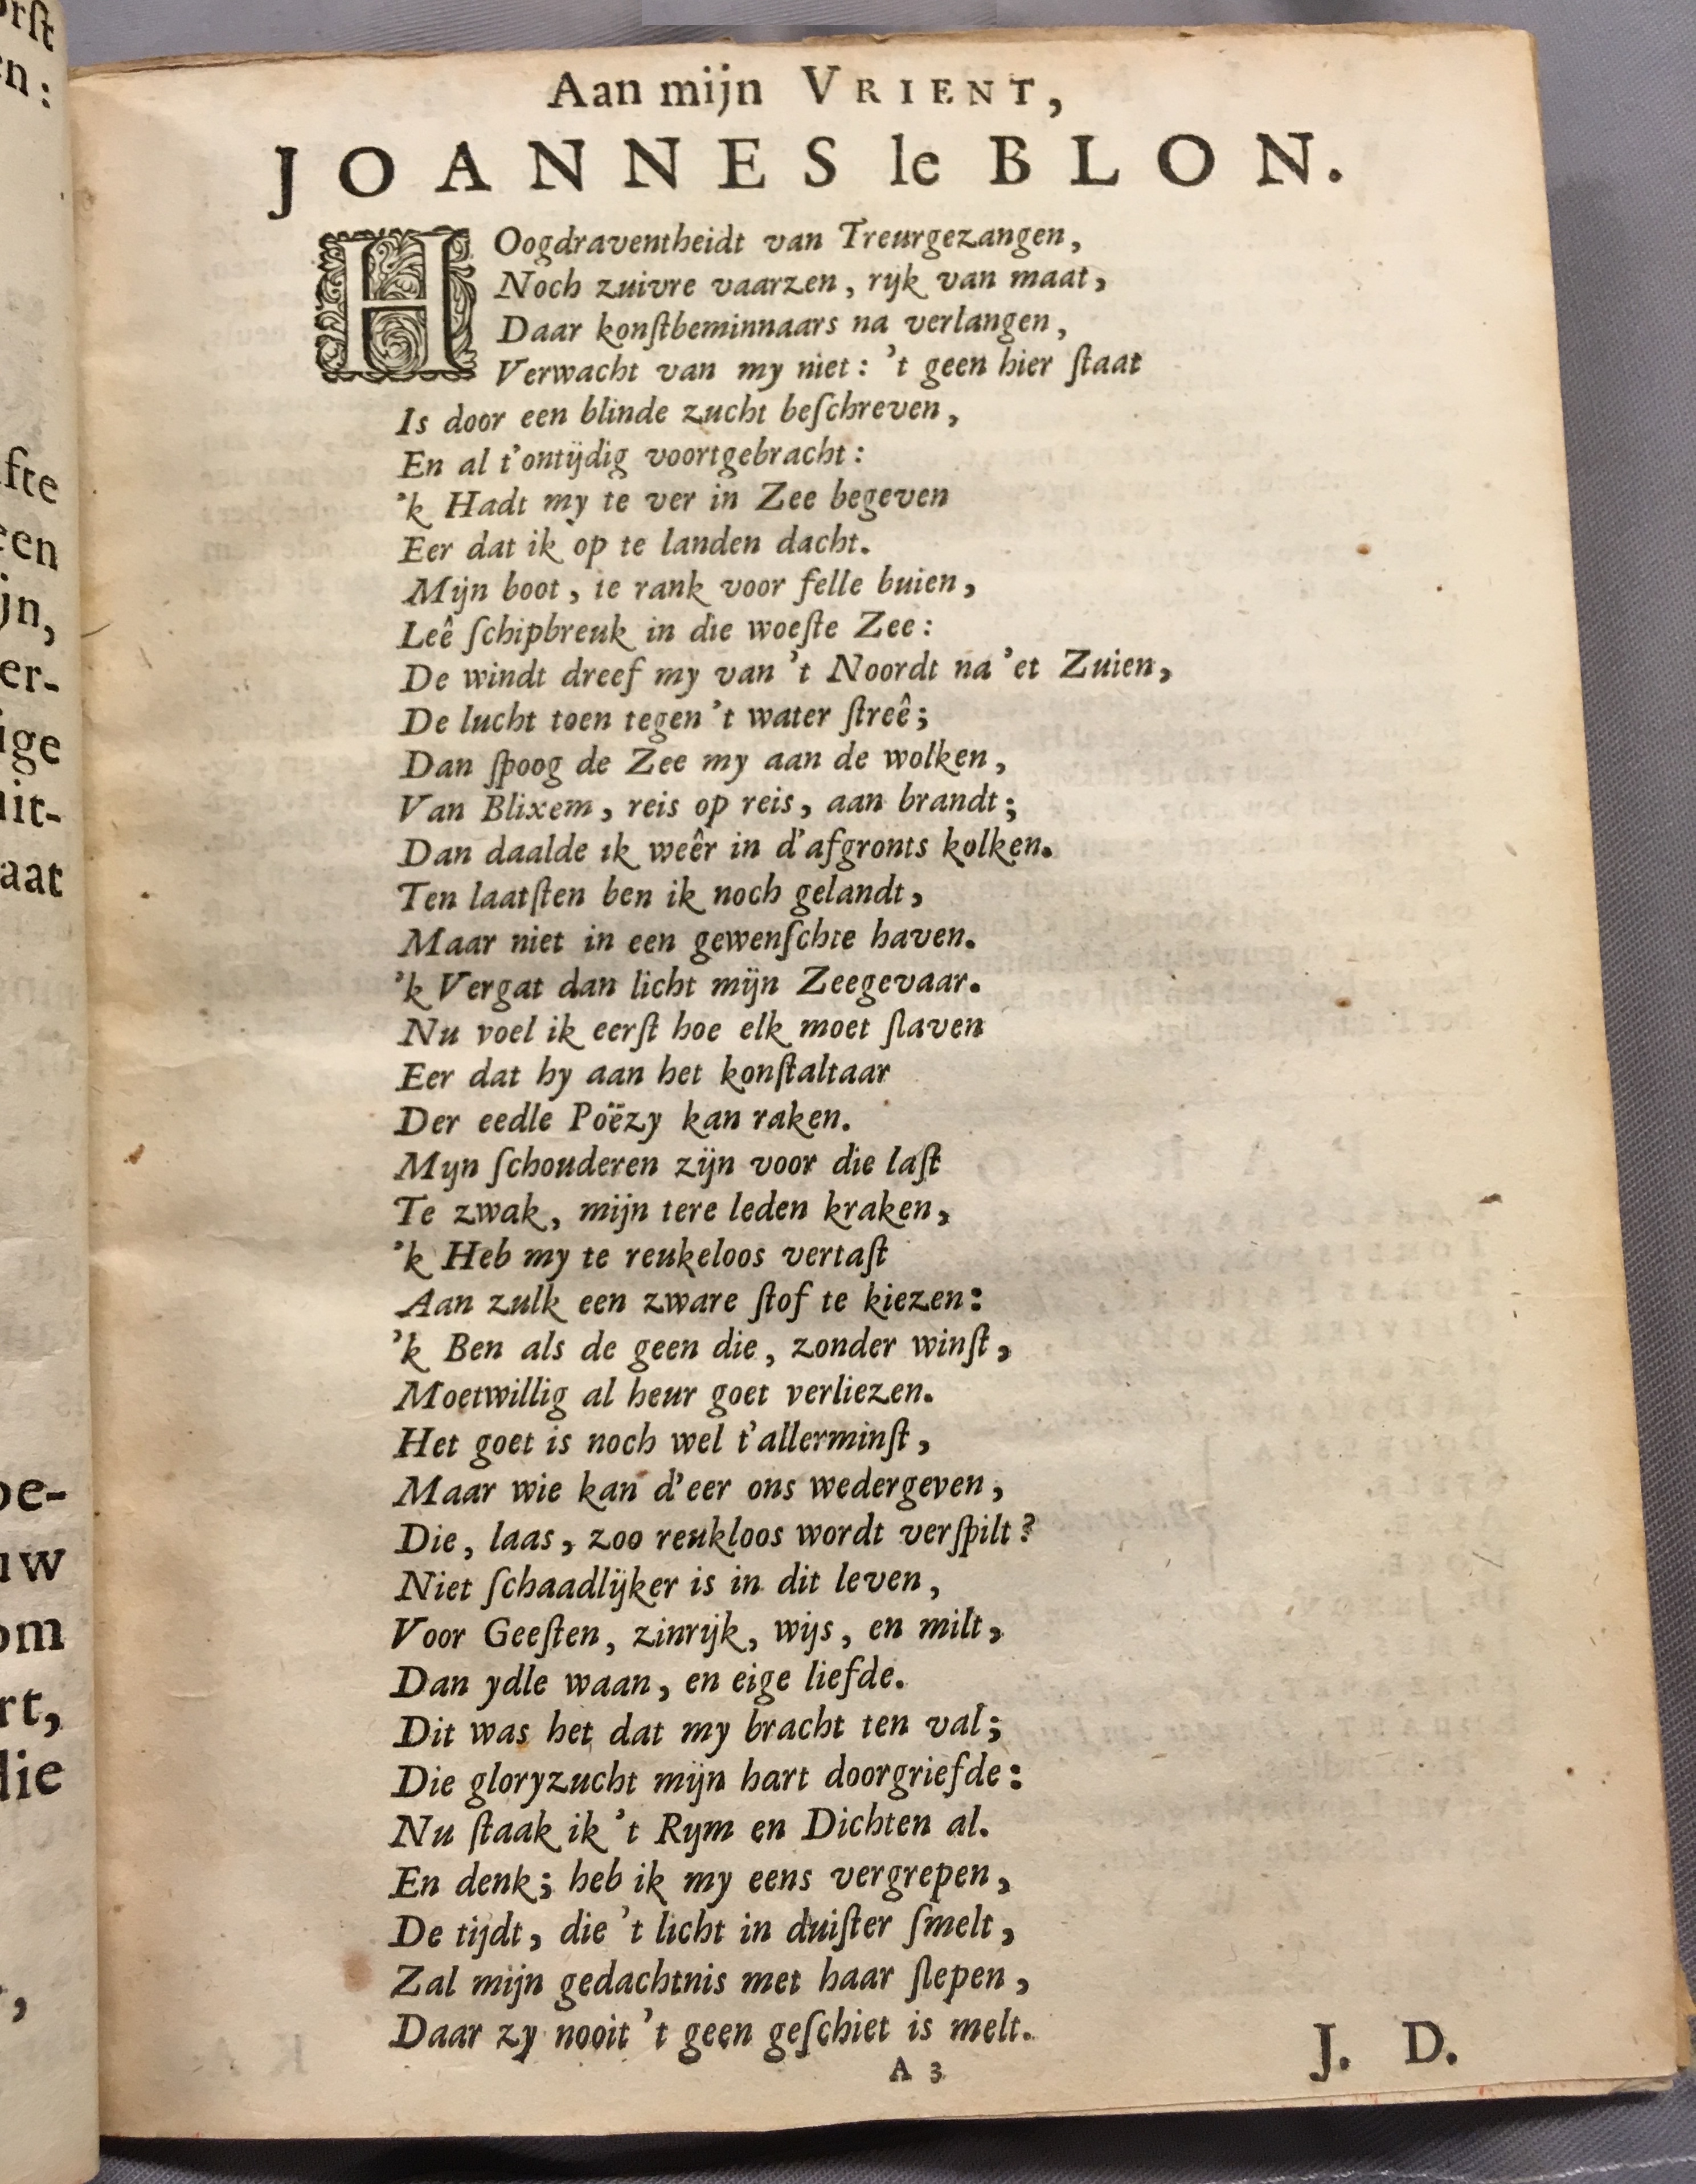 Aan mijn VRIENT,
JOANNES le BLON.
HOogdraventheidt van Treurgezangen,
Noch zuivre vaarzen, rijk van maat,
Daar konſtbeminnaars na verlangen,
Verwacht van my niet: 't geen hier ſtaat
Is door een blinde zucht beſchreven,
En al t'ontijdig voortgebracht:
'k Hadt my te ver in Zee begeven
Eer dat ik op te landen dacht.
Mijn boot, te rank voor felle buien,
Leê ſchipbreuk in die woeſte Zee:
De windt dreef my van 't Noordt na 'et Zuien,
De lucht toen tegen 't water ſtreê;
Dan ſpoog de Zee my aan de wolken,
Van Blixem, reis op reis, aan brandt;
Dan daalde ik weêr in d'afgronts kolken.
Ten laatſten ben ik noch gelandt,
Maar niet in een gewenſchte haven.
'k Vergat dan licht mijn Zeegevaar.
Nu voel ik eerſt hoe elk moet ſlaven
Eer dat hy aan het konſtaltaar
Der eedle Poëzy kan raken.
Mijn ſchouderen zijn voor die laſt
Te zwak, mijn tere leden kraken,
'k Heb my te reukeloos vertaſt
Aan zulk een zware ſtof te kiezen:
'k Ben als de geen die, zonder winſt,
Moetwillig al heur goet verliezen.
Het goet is noch wel t'allerminſt,
Maar wie kan d'eer ons wedergeven,
Die, laas, zoo reukloos wordt verſpilt?
Niet ſchaadlijker is in dit leven,
Voor Geeſten, zinrijk, wijs, en milt,
Dan ydle waan, en eige liefde.
Dit was het dat my bracht ten val;
Die gloryzucht mijn hart doorgriefde:
Nu ſtaak ik 't Rym en Dichten al.
En denk; heb ik my eens vergrepen,
De tijdt, die 't licht in duiſter ſmelt,
Zal mijn gedachtnis met haar ſlepen,
Daar zy nooit 't geen geſchiet is melt.
J. D.
A 3